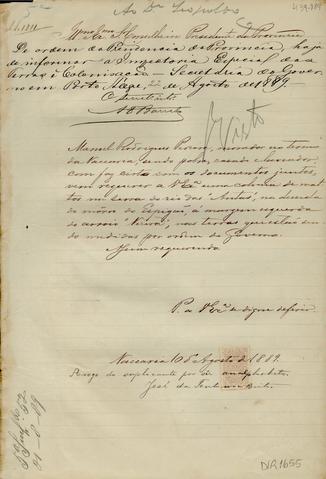 Ao Dr Leopoldo
439.984
Illmo Exmo Conselheiro Presidente da Provincia
De ordem da Presidencia da Provincia, haja
de informar a Inspectoria Especial das
Terras e Colonisação — Secretaria do Gover
no em Porto Alegre, 22 de Agosto de 1889.
O Secretario
Visto
Manoel Rodrigues, morador no termo
da Vaccaria, sendo pobre, casado e lavrador,
com faz certo com os documentos juntos,
vem requerer a VExa uma colonia de mat
tos na Serra do rio das Antas, na
do morro do, á margem esquerda
do arroio, nas terras que estão sen
do medidas por ordem do Governo.
Assim requerendo
P. a VExa se digne deferir
Vaccaria 10 de Agosto de 1889.
A rogo do supplicante por ser analphabeto.
José da
DIR1655